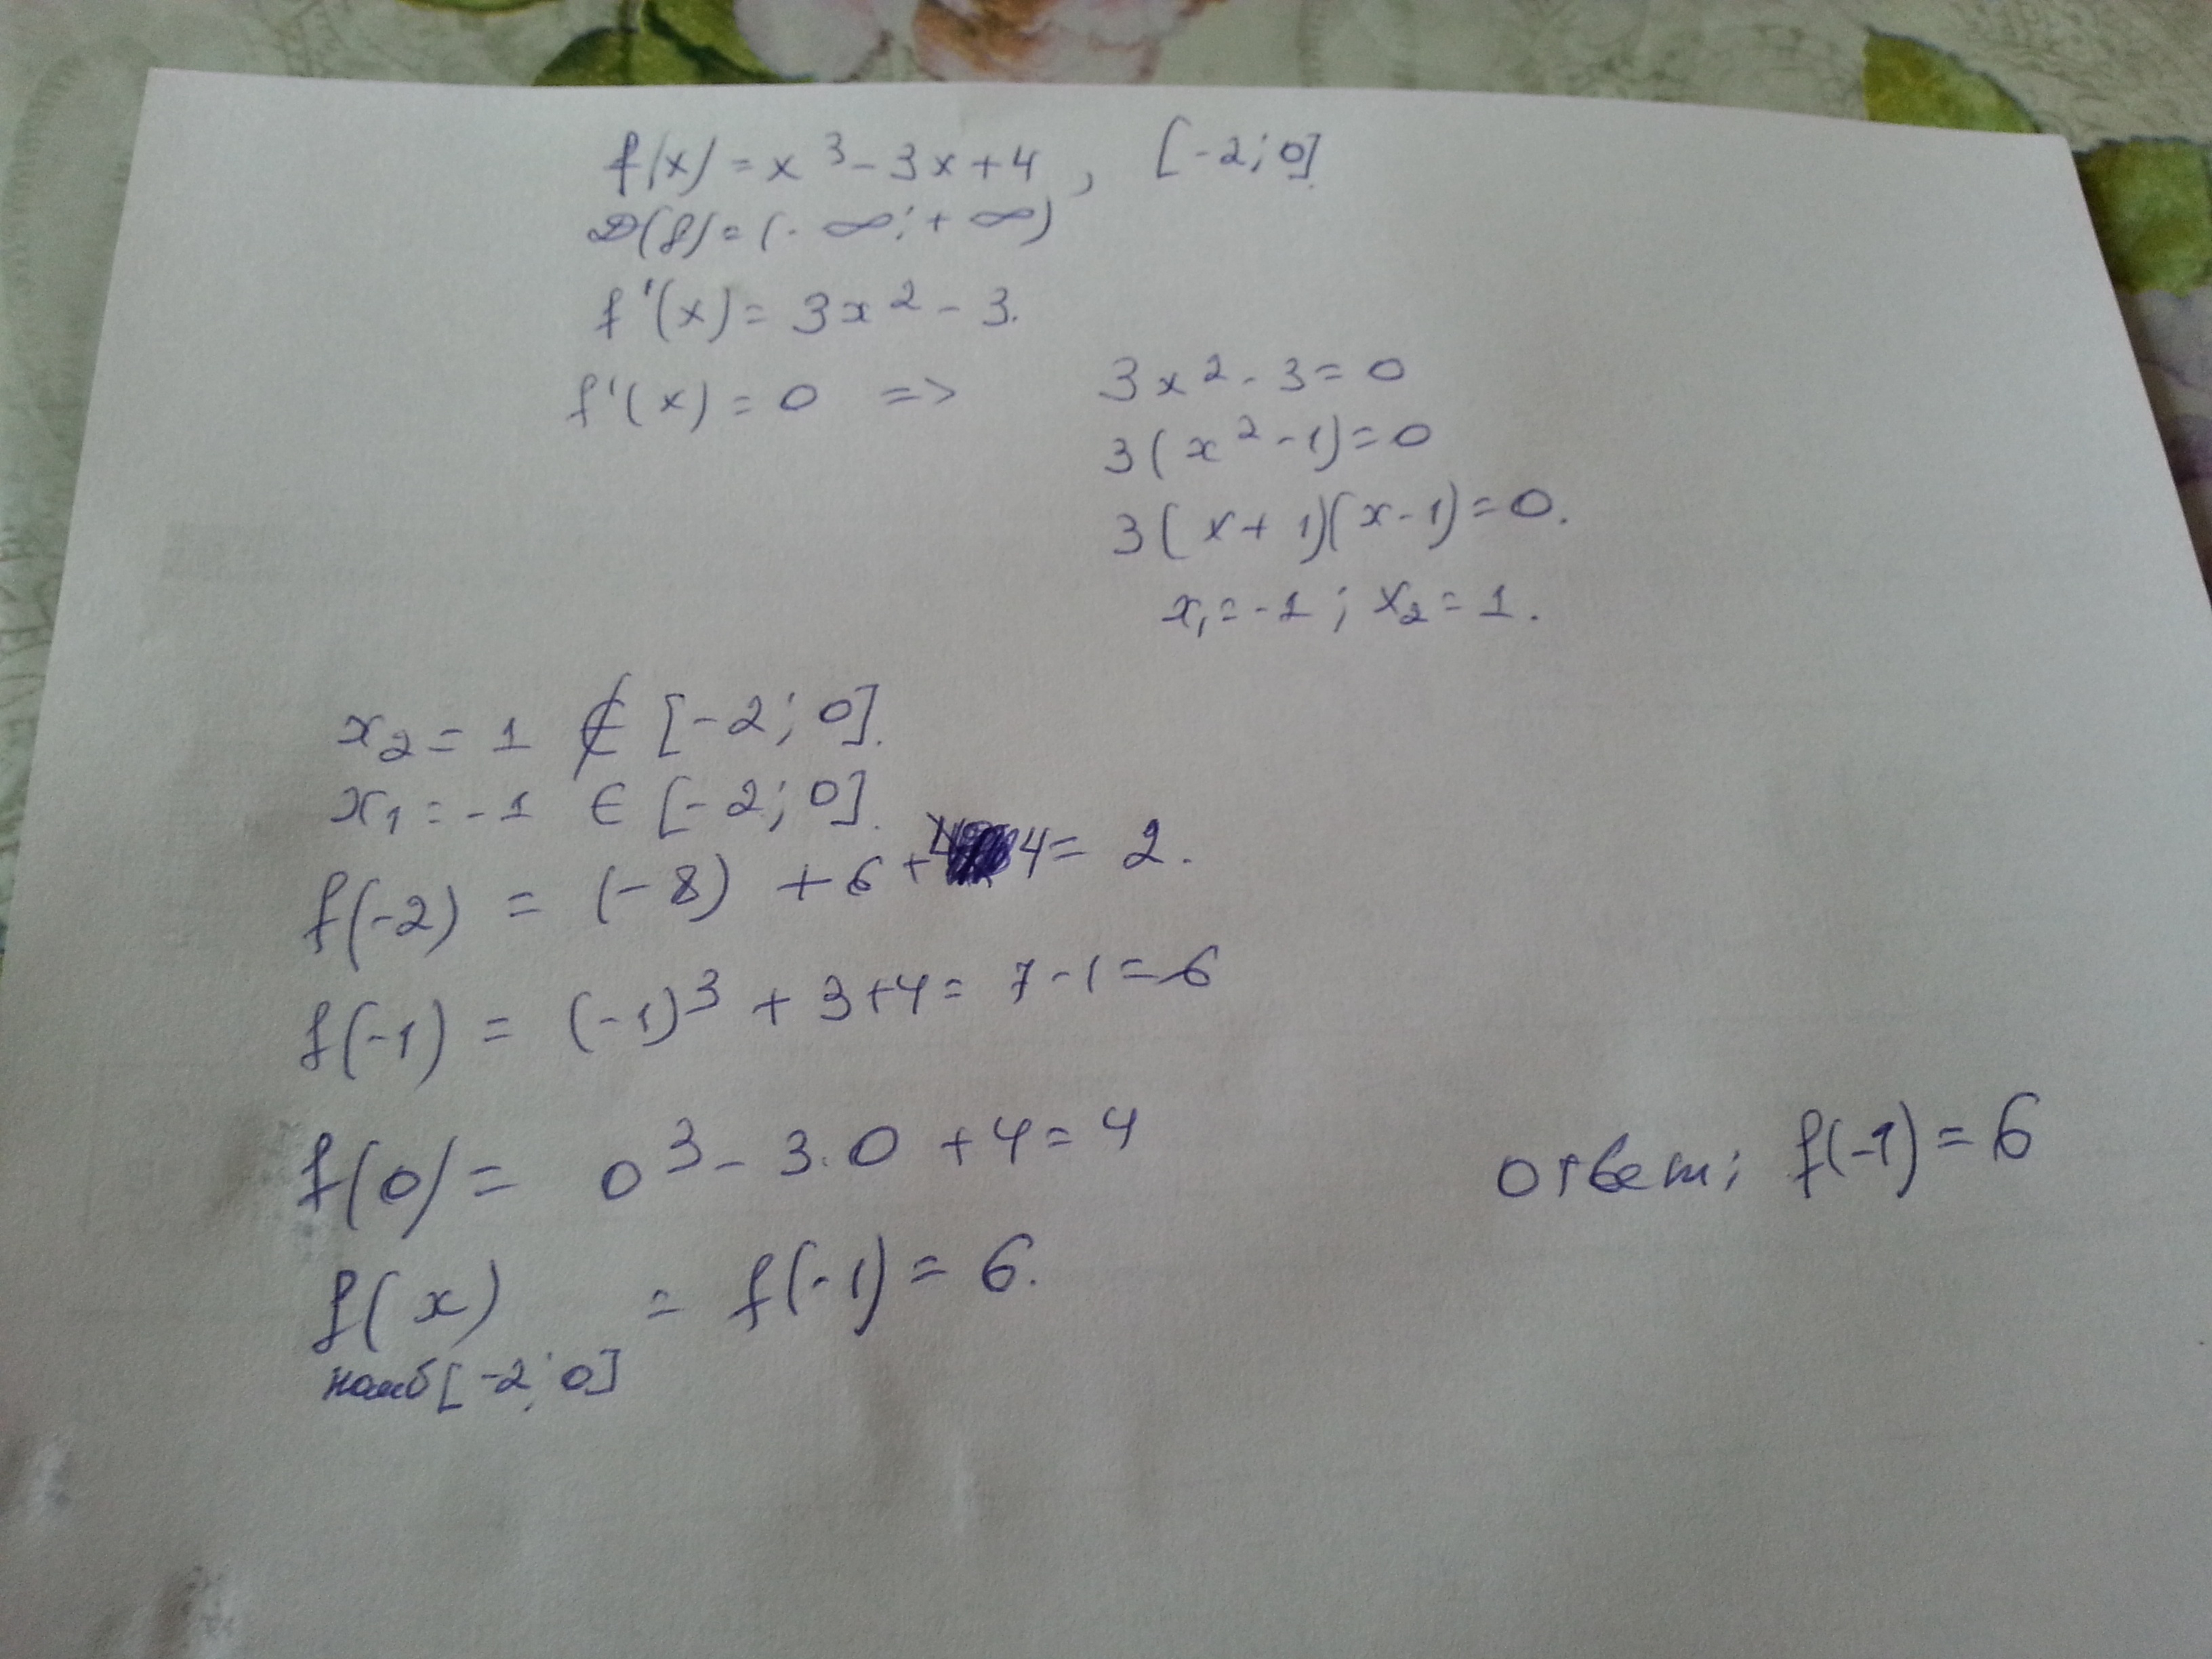 f(x) = x³ - 3x + 4, [-2; 0].
D(f) = (-∞; + ∞)
f'(x) = 3x² - 3.
f'(x) = 0 => 3x² - 3 = 0
3(x² - 1) = 0
3(x + 1)(x - 1) = 0.
x₁ = -1; x₂ = 1.
x₂ = 1 ∉ [-2; 0].
x₁ = -1 ∈ [-2; 0].
f(-2) = (-8) + 6 + 4 = 2.
f(-1) = (-1)³ + 3 + 4 = 7 - 1 = 6
f(0) = 0³ - 3·0 + 4 = 4
ответ; f(-1) = 6
f(x) = f(-1) = 6.
наиб [-2; 0]